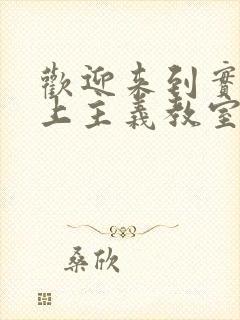 歡迎來到實
上主義教室
桑欣